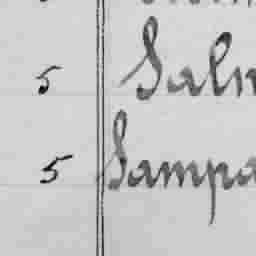 5 Saln
5 Sampa